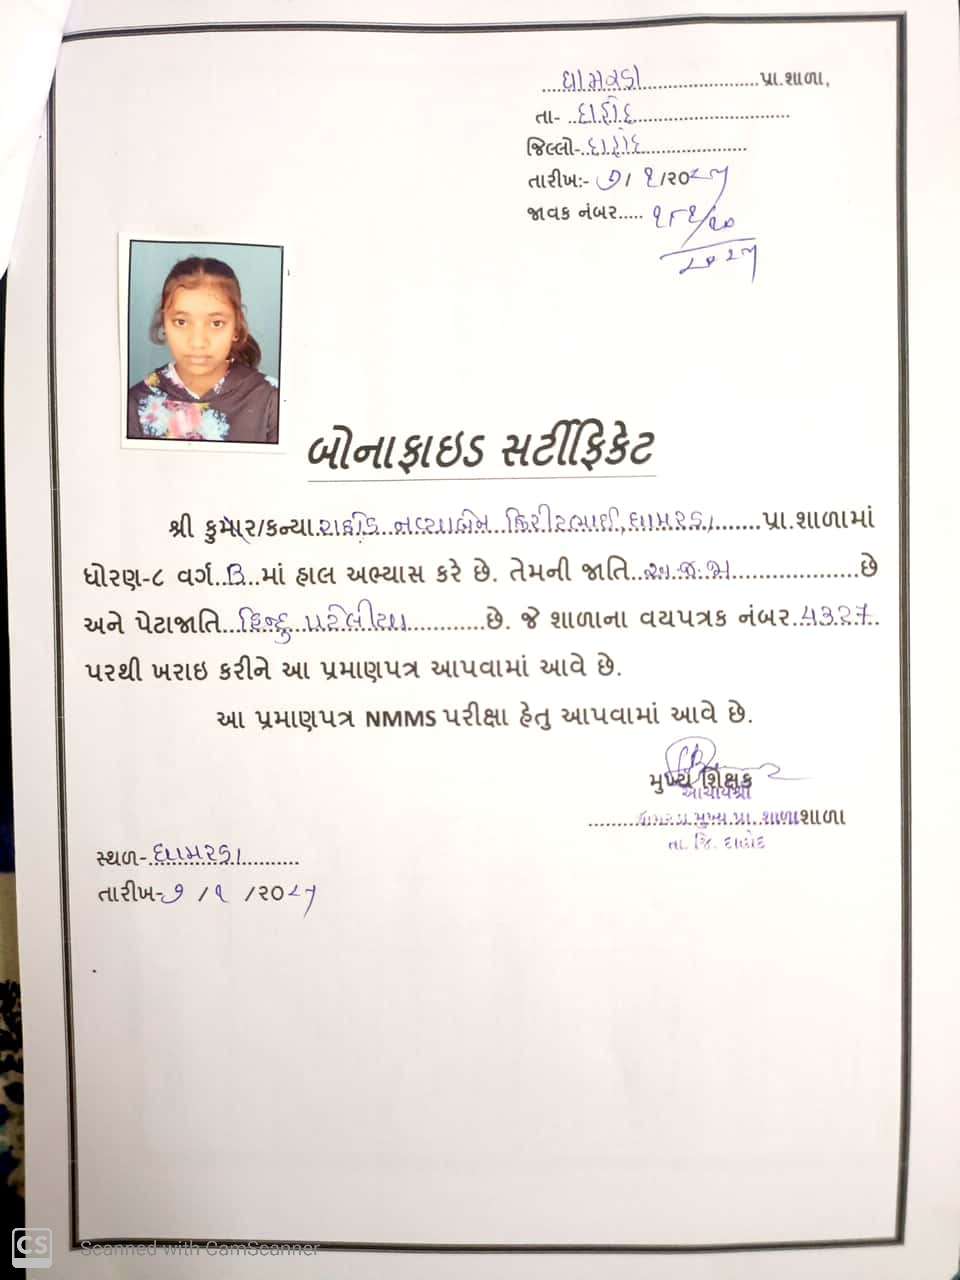 ધામરડા પ્રા.શાળા,
તા- દાહોદ
જિલ્લો- દાહોદ
તારીખ:- ૭/ ૧ /૨૦૨૫
જાવક નંબર..... ૧૮૧/૨૦
૨૦૨૫
બોનાફાઇડ સર્ટીફિકેટ
શ્રી કુમાર/કન્યા રાઠોડ નવ્યાબેન કિરીટભાઈ, ધામરડા પ્રા.શાળામાં
ધોરણ-૮ વર્ગ B માં હાલ અભ્યાસ કરે છે. તેમની જાતિ અ.જ.જા છે
અને પેટાજાતિ હિન્દુ પટેલીયા છે. જે શાળાના વયપત્રક નંબર 4327
પરથી ખરાઇ કરીને આ પ્રમાણપત્ર આપવામાં આવે છે.
આ પ્રમાણપત્ર NMMS પરીક્ષા હેતુ આપવામાં આવે છે.
મુખ્ય શિક્ષક
આચાર્યશ્રી
મુખ્ય પ્રા. શાળા શાળા
તા. જિ. દાહોદ
સ્થળ- ધામરડા
તારીખ- ૭ / ૧ /૨૦૨૫
CS Scanned with CamScanner